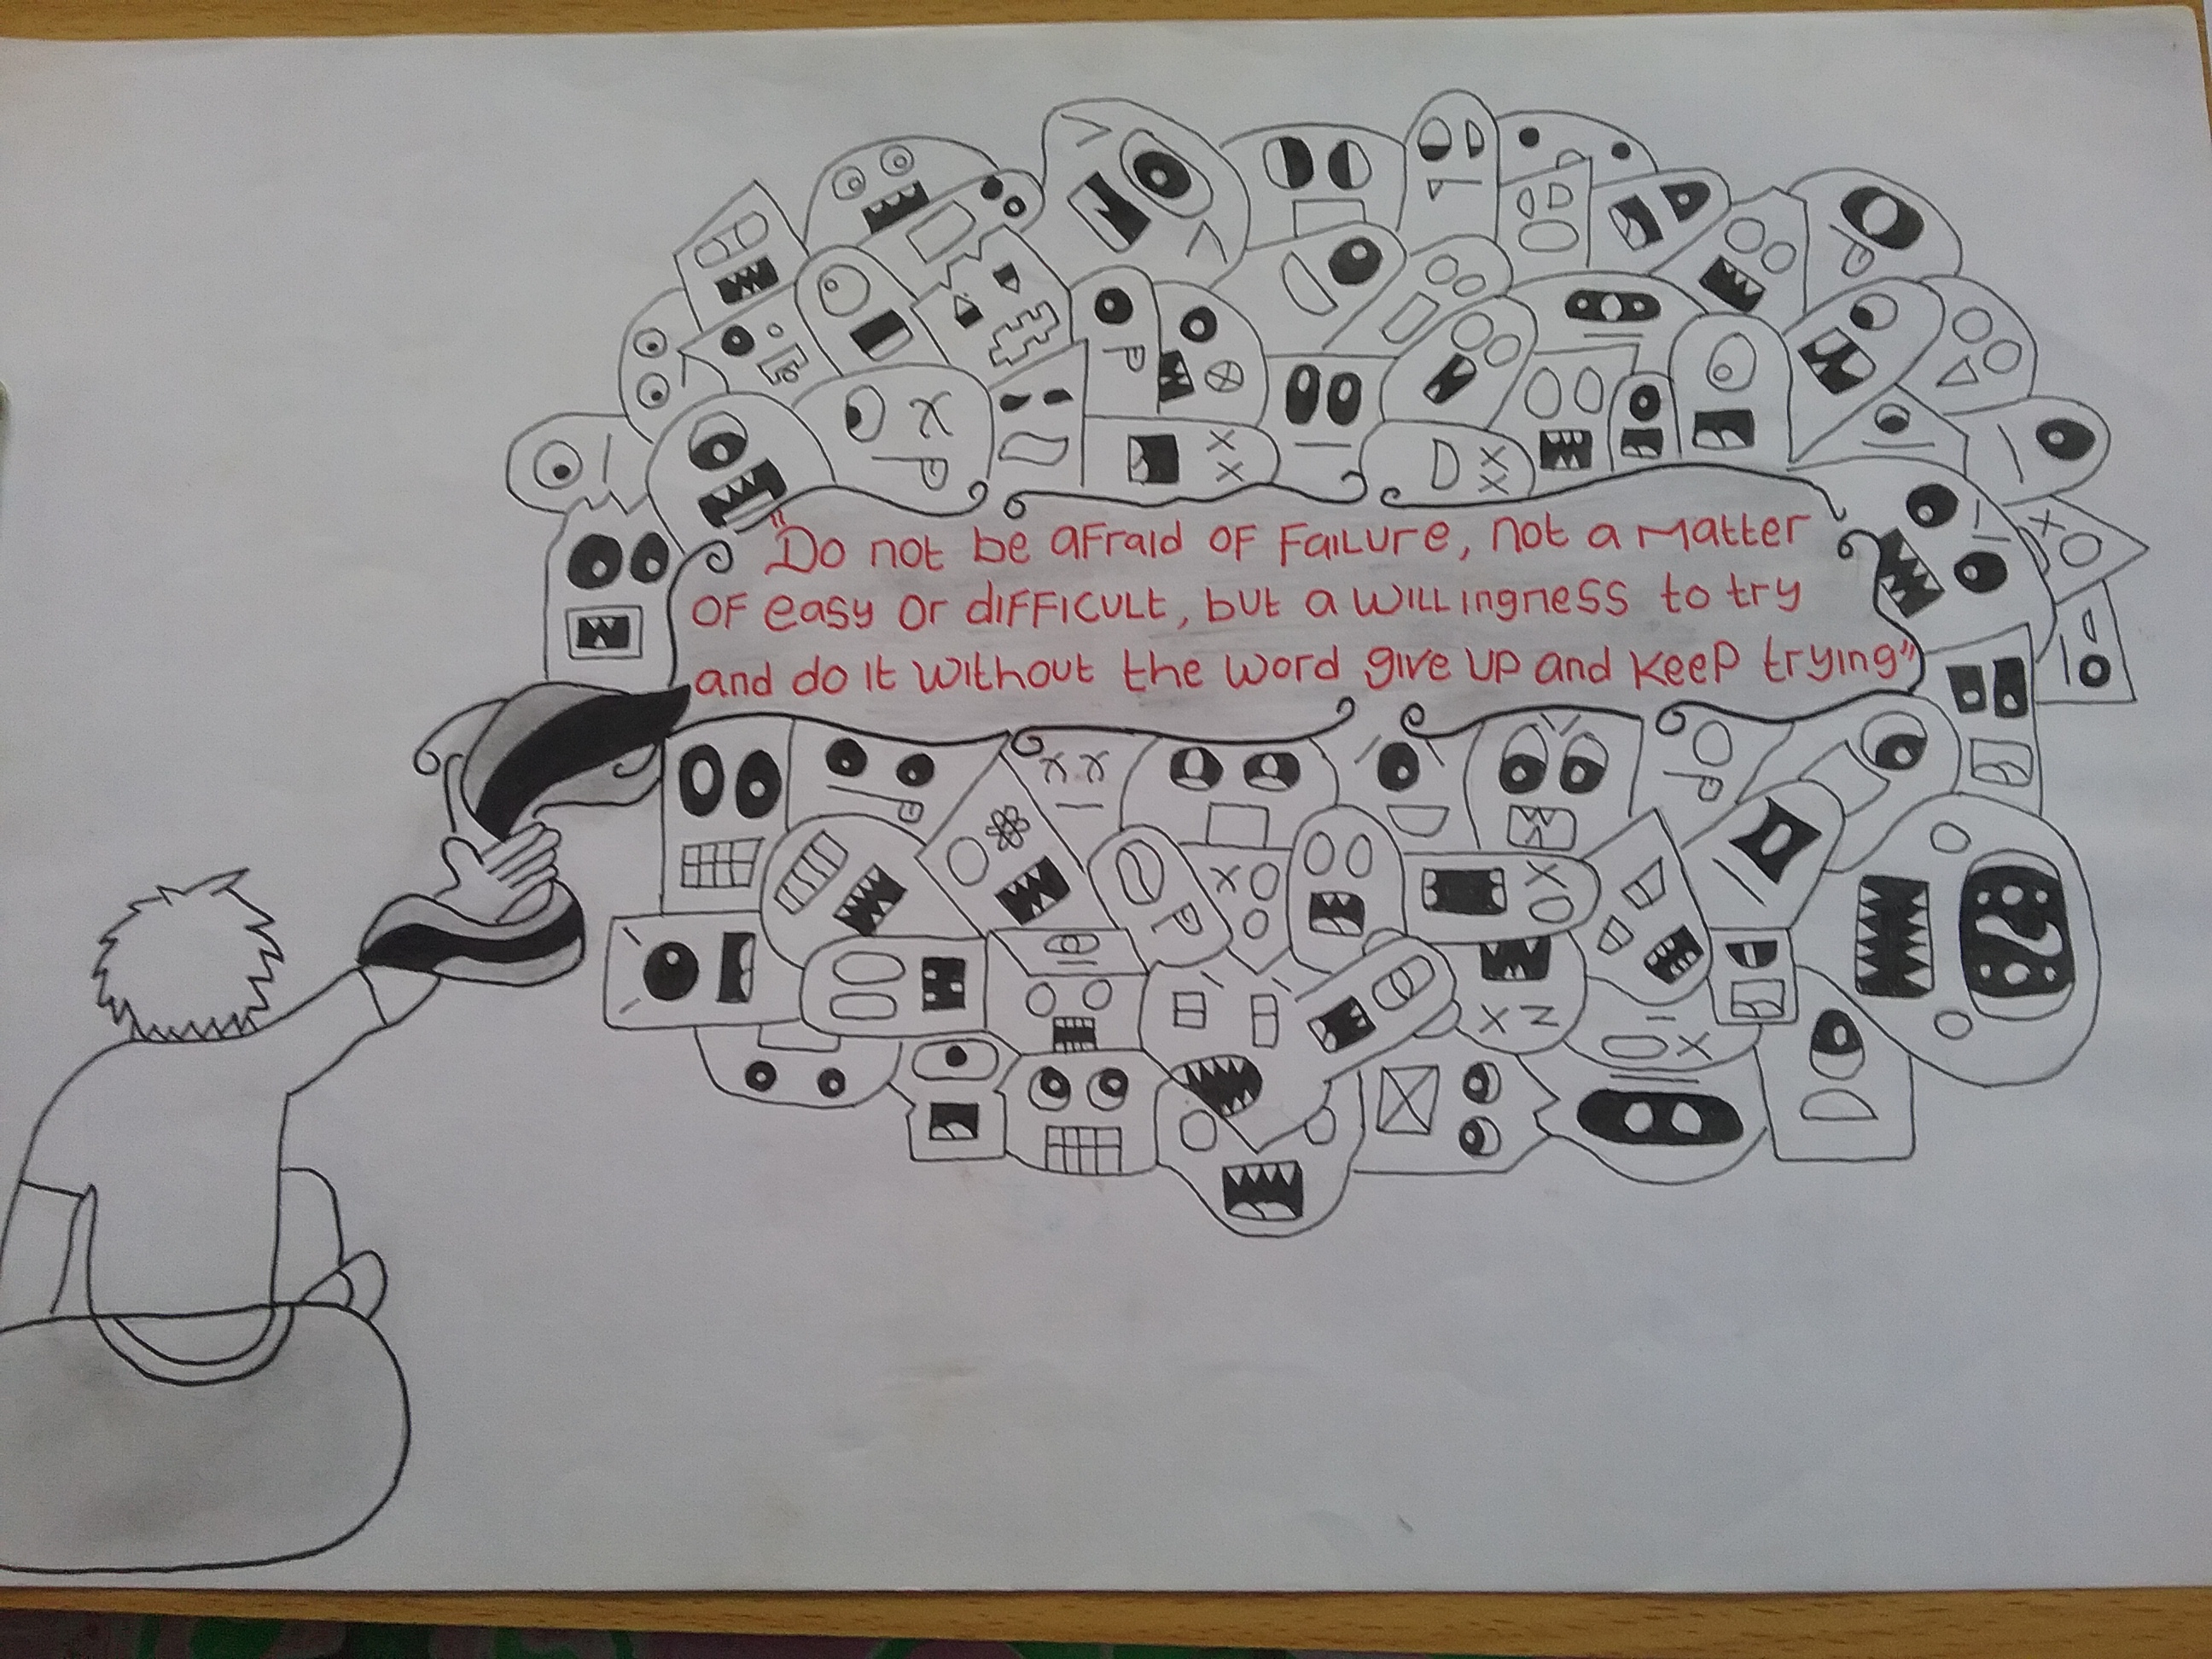 "Do not be afraid of failure, not a matter
of easy or difficult, but a willingness to try
and do it without the word give up and keep trying"